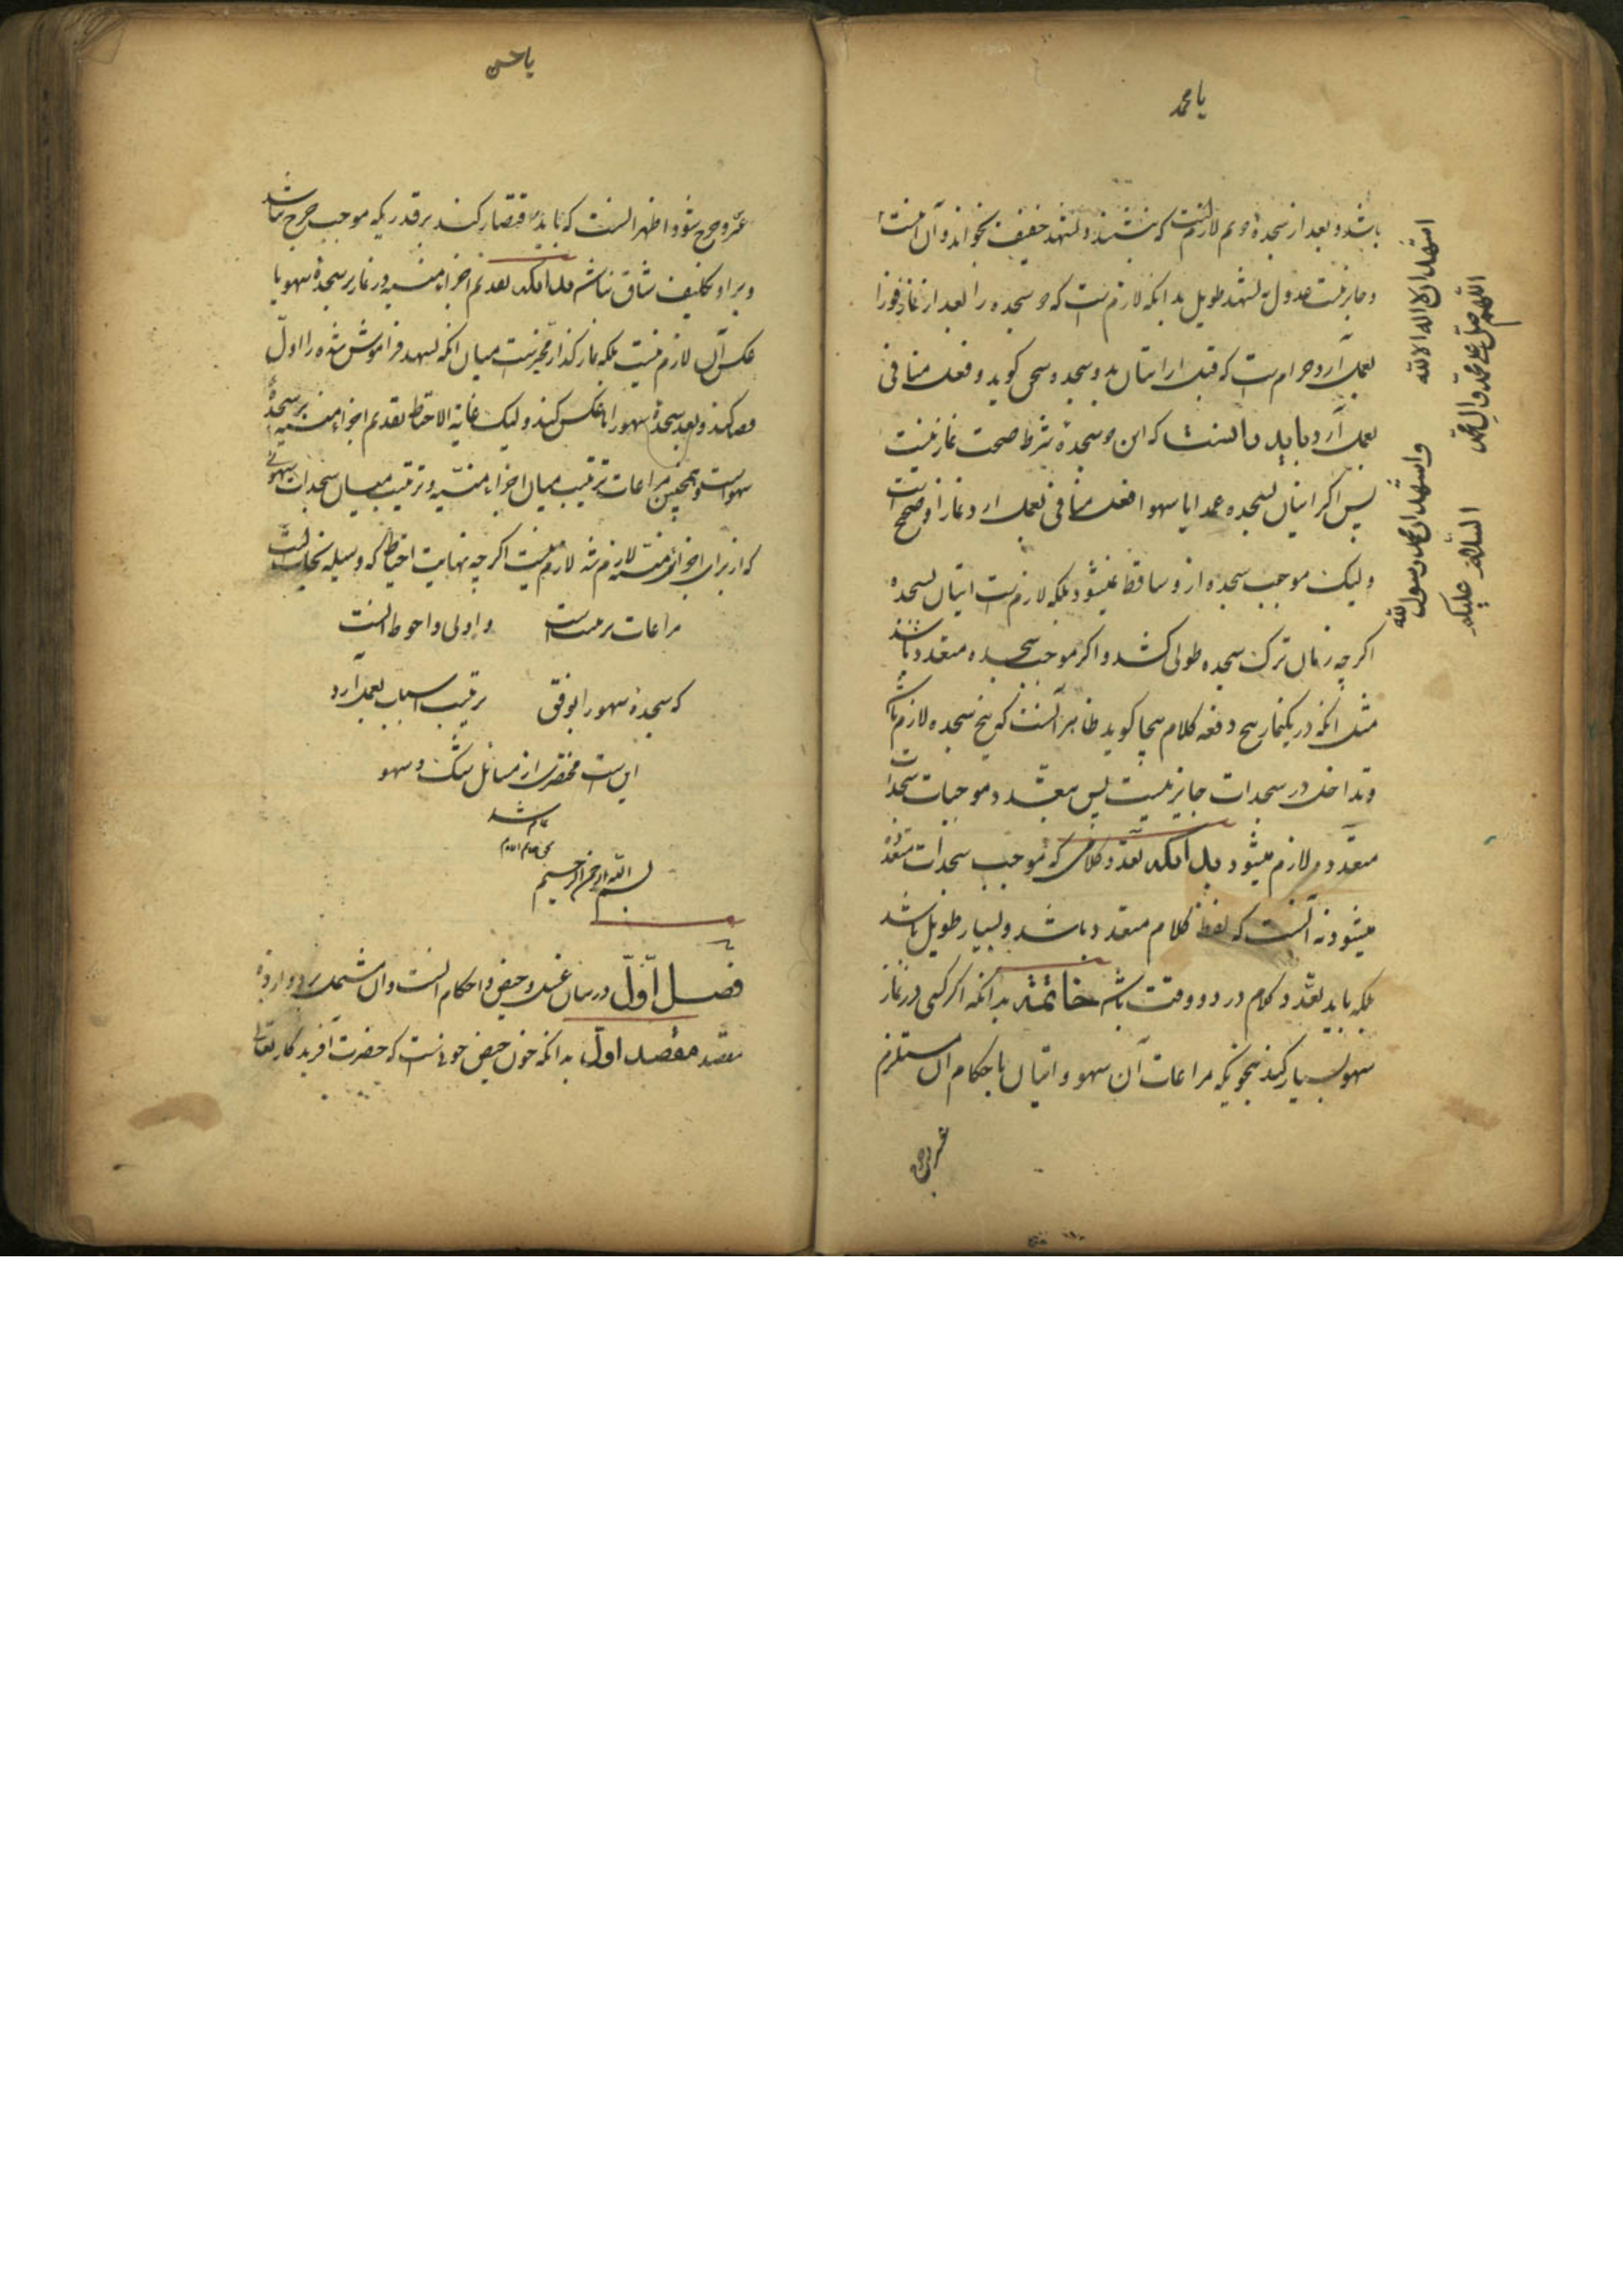 یا محمد
باشد و بعد از سجده دوم لازمست که بنشیند و تشهد خفیف بخواند و آن اینست
اشهد ان لا اله الا الله واشهد ان محمد رسول الله
اللهم صل علی محمد وآل محمد السلام علیکم
و جایز نیست عدول به تشهد طویل بدانکه لازم است که دو سجده را بعد از نماز فورا
بعمل آرد و حرام است که قبل از اتیان بدو سجده سخن کوید و فعل منافی
بعمل آرد و باید دانست که این دو سجده شرط صحت نماز نیست
پس اکر اتیان بسجده عمدا یا سهوا فعل منافی بعمل ارد نماز او صحیح است
ولیک موجب سجده از و ساقط نمیشود بلکه لازم ست اتیان بسجده
اکرچه زمان ترک سجده طولی کشد و اکر موجب سجده متعدد باشد
مثل انکه در یکنماز پنج دفعه کلام بیجا کوید ظاهر آنست که پنج سجده لازم باشد
و تداخل در سجدات جایز نیست پس بتعدد موجبات سجدات
متعدد لازم میشود بدانکه تعدد کلامی که موجب سجدات متعدد
میشود نه آنست که لفظ کلام متعدد باشد و بسیار طویل باشد
بلکه باید تعدد کلام در دو وقت باشد خاتمه بدانکه اکر کسی در نماز
سهو بسیار کند بنحویکه مراعات آن سهو و اتیان باحکام آن مستلزم
یا حسن
عسر و حرج شود اظهر انست که باید اقتصار کند بر قدریکه موجب حرج نباشد
و بر او تکلیف شاق نباشد بدانکه تقدیم اجزاء منسیه در نماز بر سجده سهو یا
عکس آن لازم نیست بلکه نماز کذار مخیرست میان انکه تشهد فراموش شده را اول
قصد کند و بعد سجده سهو را یا عکس کند ولیک غایة الاحتیاط تقدیم اجزاء منسیه بر سجده
سهو است و همچنین مراعات ترتیب میان اجزاء منسیه و ترتیب میان سجدات سهوی
که از برای اجزاء منسیه لازم شد لازم نیست اکرچه نهایت احتیاط که وسیله نجات است
مراعات ترتیب است و اولی و احوط انست
که سجده سهو را بوفق ترتیب اسباب بعمل آرد
این ست مختصری از مسائل شک و سهو
تمام شد
بسم الله الرحمن الرحیم
فصل اول در بیان غسل حیض و احکام انست و آن مشتمل بر دوازده
مقصد مقصد اول بدانکه خون حیض خونیست که حضرت آفریدکار تعالی